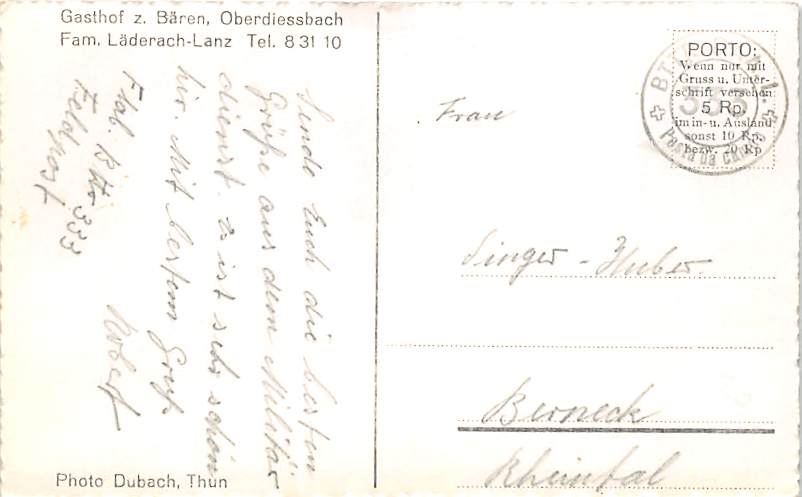 Gasthof z. Bären, Oberdiessbach
Fam. Läderach-Lanz Tel. 8 31 10
Sende Euch die besten
Grüße aus dem Militär
dienst. Es ist sehr schön
hir. Mit bestem Gruß
Robert
Flab. Bttr. 333
Feldpost
Photo Dubach, Thun
PORTO:
Wenn nur mit
Gruss u. Unter-
schrift versehen
5 Rp.
im in- u. Ausland
sonst 10 Rp.
bezw. 20 Rp
333
Posta da
Frau
Singer - Huber.
Berneck
Rheintal